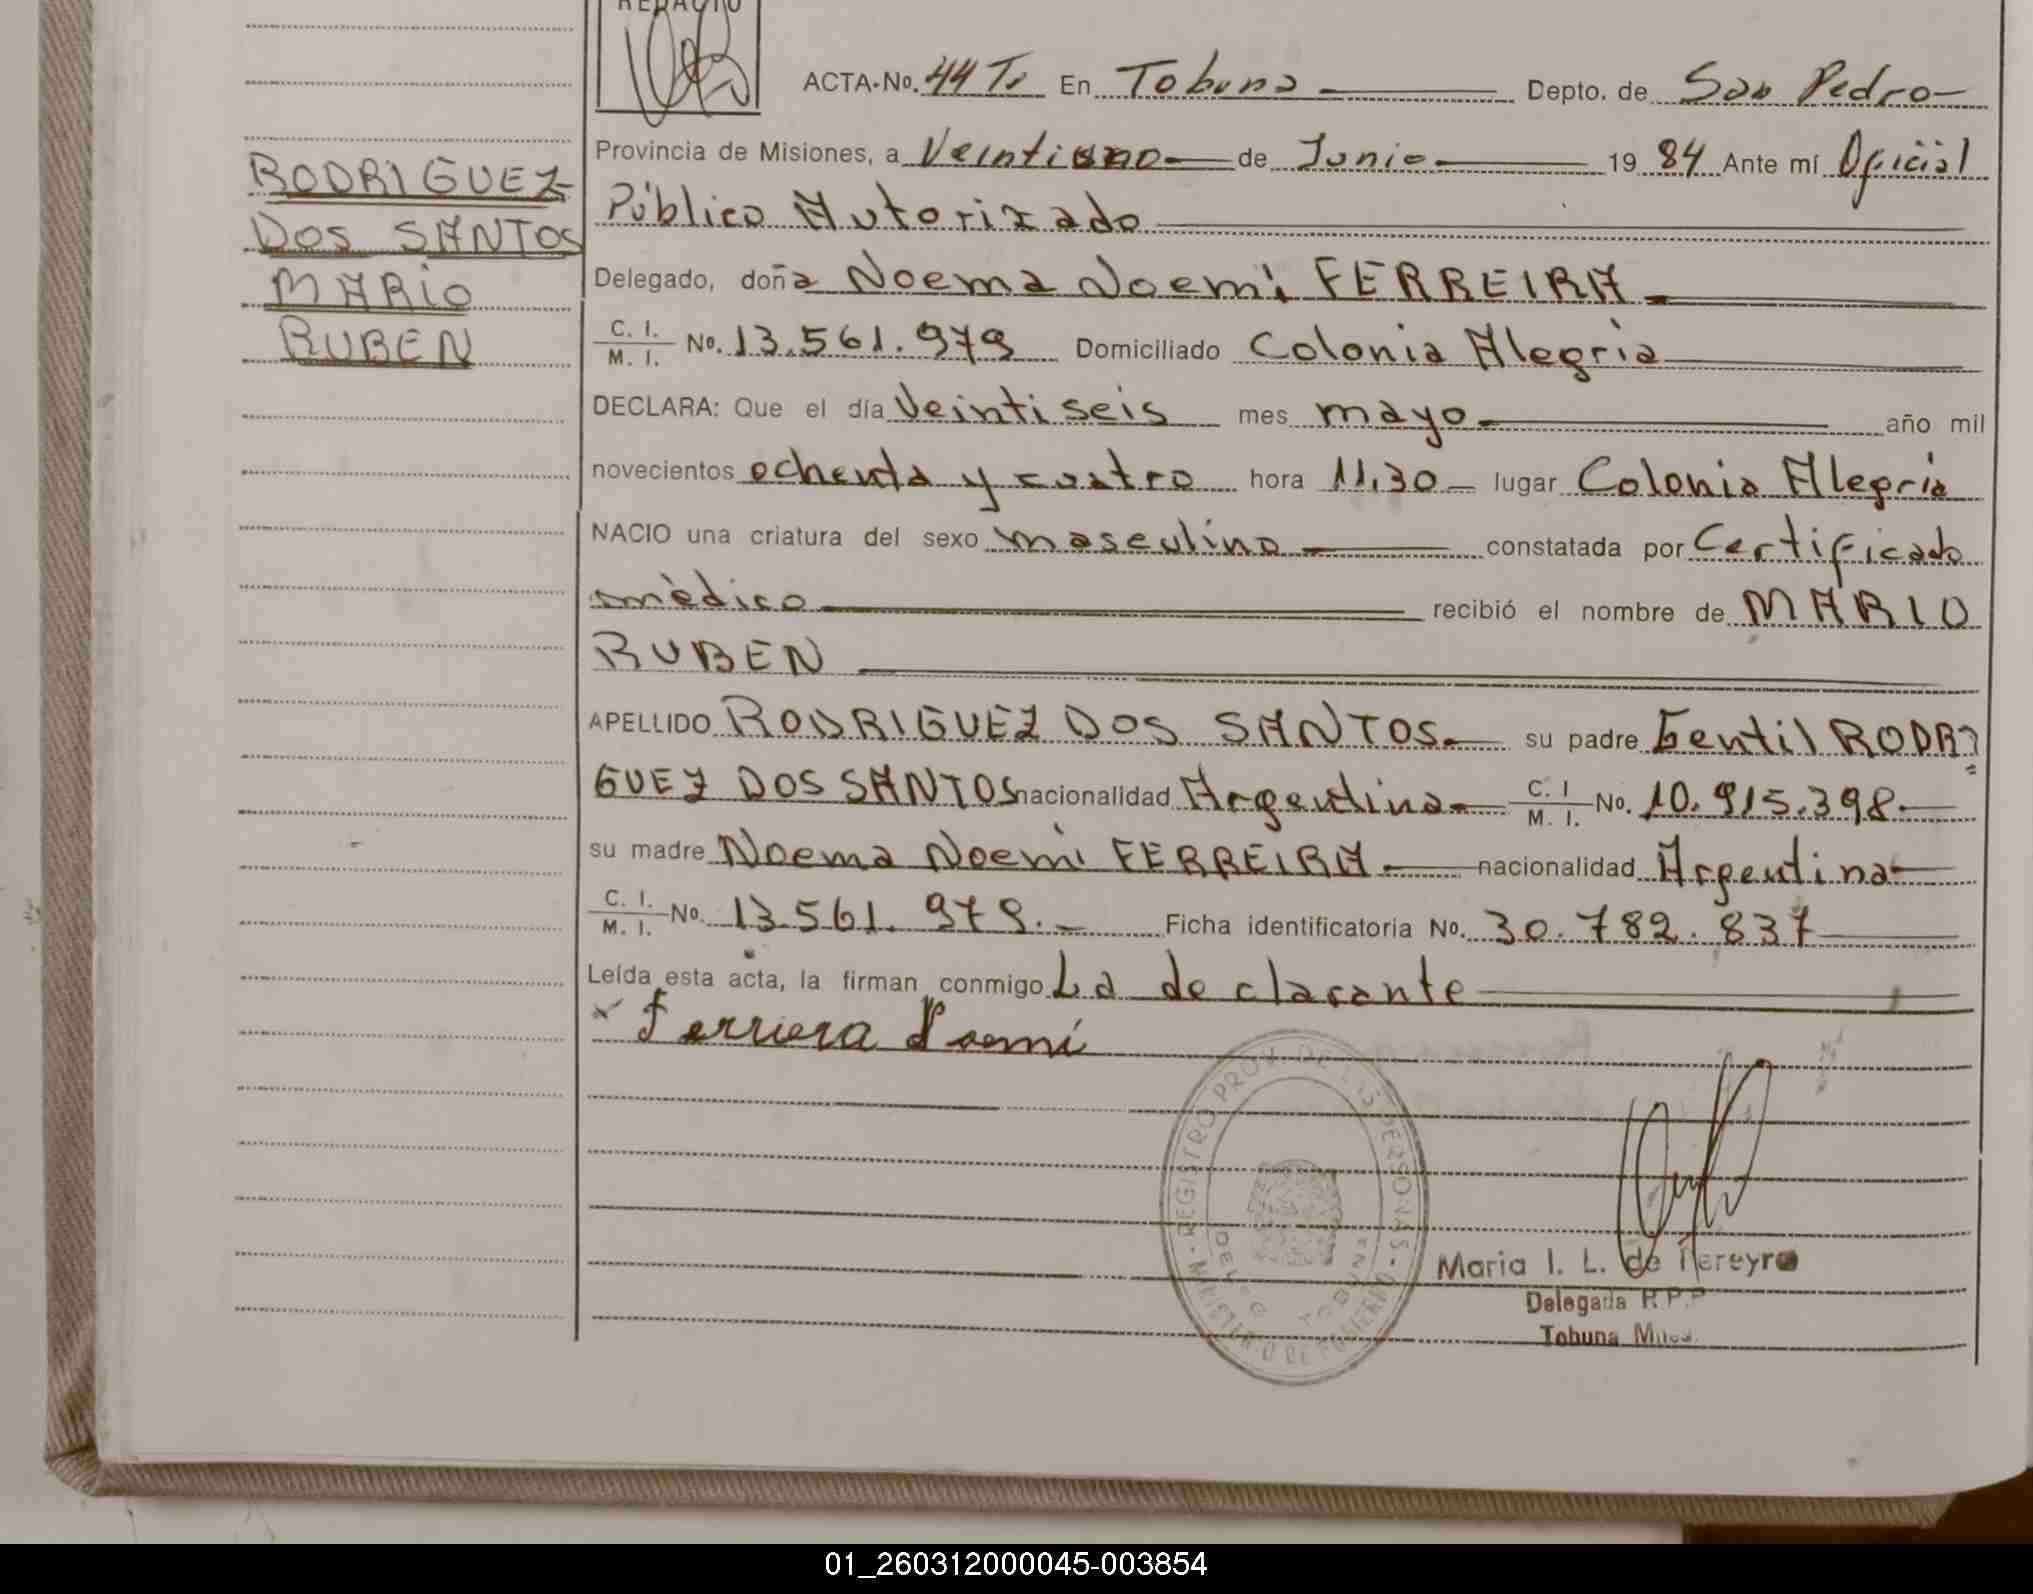 REDACTO
ACTA-No. 44 To En Tobuna Depto. de San Pedro
Provincia de Misiones, a Veintiuno de Junio 19 84 Ante mí Oficial
Público Autorizado
Delegado, doña Noema Noemi FERREIRA
C. I. / M. I. No. 13.561.979 Domiciliado Colonia Alegria
DECLARA: Que el día Veintiseis mes mayo año mil
novecientos ochenta y cuatro hora 11,30 lugar Colonia Alegria
NACIO una criatura del sexo masculino constatada por Certificado
mèdico recibió el nombre de MARIO
RUBEN
APELLIDO RODRIGUEZ DOS SANTOS su padre Gentil RODRI
GUEZ DOS SANTOS nacionalidad Argentina C. I / M. I. No. 10.915.398
su madre Noema Noemi FERREIRA nacionalidad Argentina
C. I. / M. I. No. 13.561.979. Ficha identificatoria No. 30.782.837
Leída esta acta, la firman conmigo La declarante
x Ferriera Noemí
RODRIGUEZ
DOS SANTOS
MARIO
RUBEN
REGISTRO PROV. DE LAS PERSONAS
MINISTERIO DE GOBIERNO
TOBUNA
Maria I. L. de Pereyra
Delegada R.P.P
Tobuna Mnes.
01_260312000045-003854